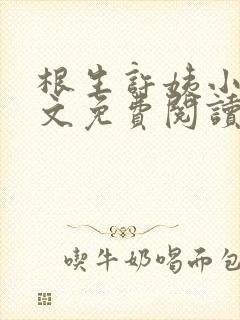 根生許姨小
文免費閱讀
喫牛奶喝面包